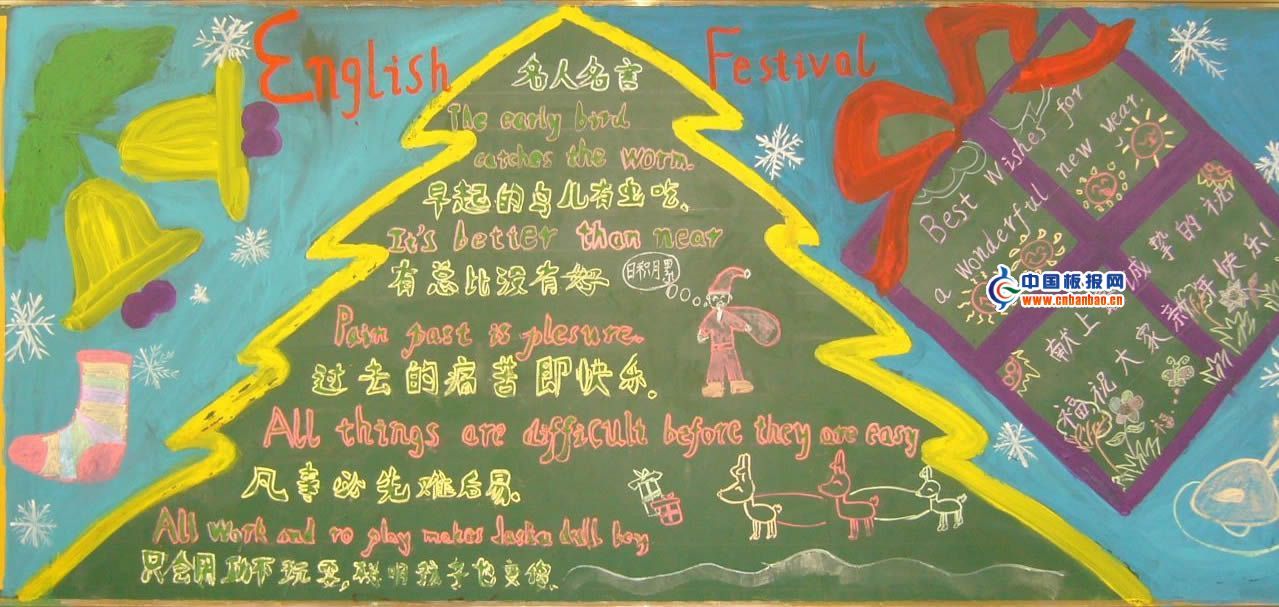 English Festival
名人名言
The early bird
catches the worm.
早起的鸟儿有虫吃.
It's better than near
有总比没有好
日积月累
Pain past is plesure.
过去的痛苦即快乐.
All things are difficult before they are easy
凡事必先难后易.
All work and ro play makes dull boy
只会用功不玩耍,聪明孩子也变傻.
Best Wishes for
a Wonderful new year.
献上 诚挚的祝
福祝大家新年快乐!
福...
中国板报网
www.cnbanbao.cn